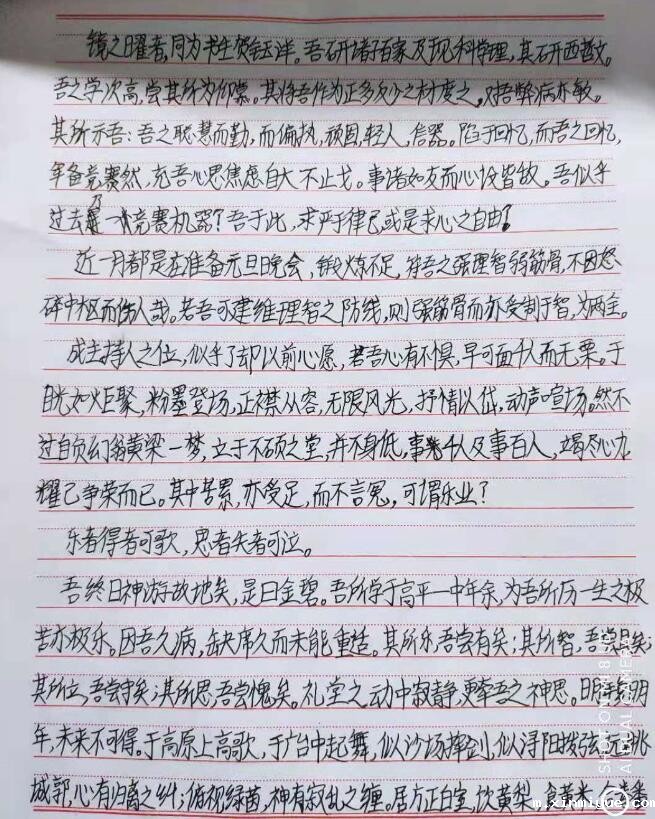 镜之曜者,同为书生贺钰洋。吾研诸子百家及现科学理,其研西哲文。
吾之学次高,尝其所为仰慕。其将吾作为正多匆少之忖度之。对吾弊病亦敏。
其所示吾:吾之聪慧而勤,而偏执,顽固,轻人,信器。陷于回忆,而吾之回忆,
年备竞赛然,充吾心思焦虑自大不止戈。事诸如友而心份皆故。吾似乎
过去乃一竞赛机器?吾于此,求严于律己或是求心之自由?
近一月都是在准备元旦晚会,锻炼不足,将吾之强理智弱筋骨,不因怒
碎中枢而伤人哉。若吾可建维理智之防线,则强筋骨而亦受制于智,为两全。
成主持人之位,似乎了却以前心愿,若吾心有不惧,早可面千人而无栗。于
目光如炬聚,粉墨登场,正襟从容,无限风光,抒情以岱,动声喧场。然不
过自负幻翁黄梁一梦,立于不硕之堂,并不身低,事千人及事百人,竭尽心力
耀己争荣而已。其中苦累,亦受足,而不言冤,可谓乐业?
乐者得者可歌,思者失者可泣。
吾终日神游故地矣,是曰金碧。吾所学于高平一中年余,为吾所历一生之极
苦亦极乐。因吾久病,缺席久而未能重适。其所乐,吾尝有矣;其所智,吾尝矣;
其所立,吾尝持矣;其所思,吾尝愧矣。礼堂之动中寂静,更牵吾之神思。明
年,未来不可得。于高原上高歌,于广台中起舞,似沙场挥剑,似浔阳拨弦,远眺
城郭,心有归离之纠;俯视绿茵,神有寂乱之缠。居方正白室,饮黄梨,食黄米
SHOT ON MI 8 SE
AI DUAL CAMERA
m.xinmigue.com